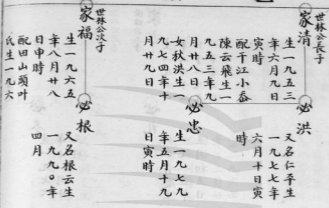 世林公長子
家清
生一九五三
年六月九日
寅時
配干江小岙
陳云飛生一
九五三年九
月廿八日
女秋洪生一
九七四年十
月廿九日
必洪
又名仁平生
一九七七年
六月十日寅
時
必忠
生一九七九
年五月十九
日寅時
世林公次子
家福
生一九六五
年八月廿八
日申時
配田山頭叶
氏生一九六
必根
又名根云生
一九九〇年
四月